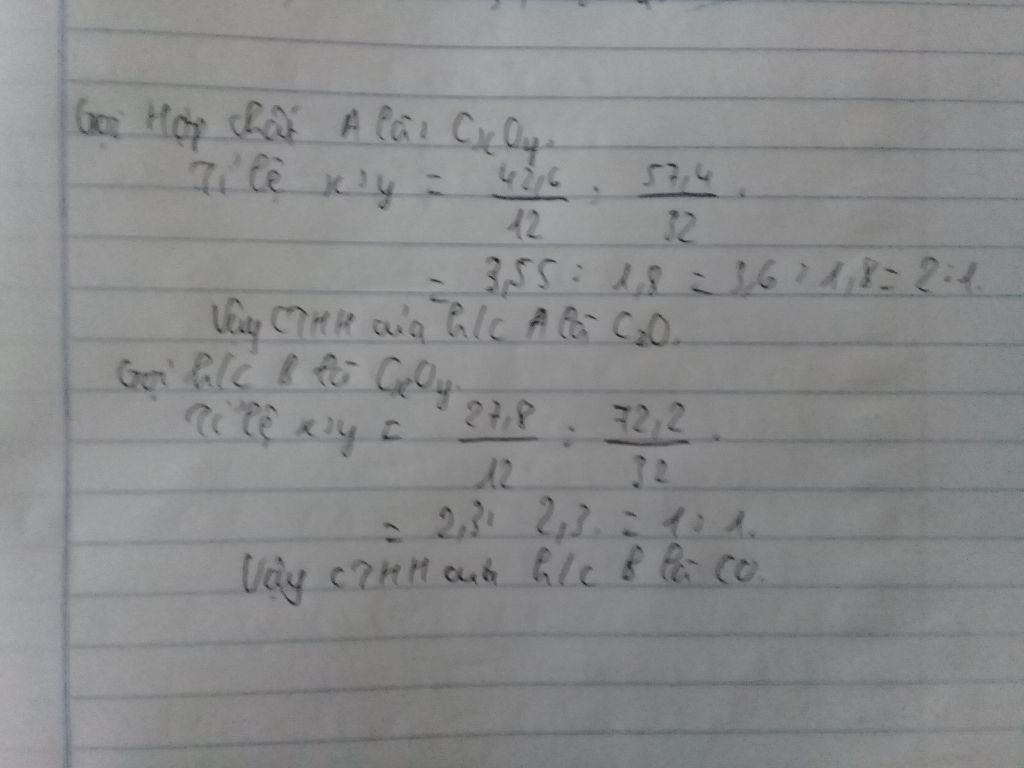 Gọi Hợp chất A là: CxOy.
Tỉ lệ x:y = 42,6/12 : 57,4/32.
= 3,55 : 1,8 = 3,6 : 1,8 = 2:1.
Vậy CTHH của h/c A là C2O.
Gọi h/c B là CxOy.
Tỉ lệ x:y = 27,8/12 : 72,2/32.
= 2,3: 2,3. = 1:1.
Vậy CTHH của h/c B là CO.